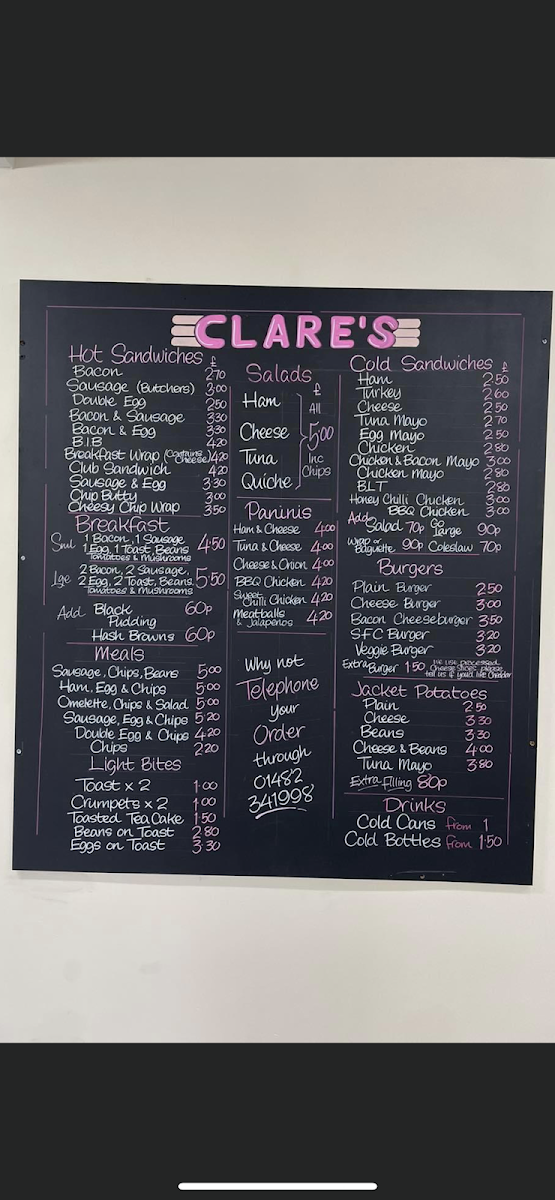 CLARE'S
Hot Sandwiches £
Bacon 2.70
Sausage (Butchers) 3.00
Double Egg 2.50
Bacon & Sausage 3.30
Bacon & Egg 3.30
B.I.B 4.20
Breakfast Wrap (Contains Cheese) 4.20
Club Sandwich 4.20
Sausage & Egg 3.30
Chip Butty 3.00
Cheesy Chip Wrap 3.50
Breakfast
Sml 1 Bacon, 1 Sausage
1 Egg, 1 Toast, Beans 4.50
Tomatoes & Mushrooms
Lge 2 Bacon, 2 Sausage,
2 Egg, 2 Toast, Beans. 5.50
Tomatoes & Mushrooms
Add Black Pudding 60p
Hash Browns 60p
Meals
Sausage, Chips, Beans 5.00
Ham, Egg & Chips 5.00
Omelette, Chips & Salad 5.00
Sausage, Egg & Chips 5.20
Double Egg & Chips 4.20
Chips 2.20
Light Bites
Toast x 2 1.00
Crumpets x 2 1.00
Toasted Tea Cake 1.50
Beans on Toast 2.80
Eggs on Toast 3.30
Salads
£
Ham
Cheese
Tuna
Quiche
All
5.00
Inc
Chips
Paninis
Ham & Cheese 4.00
Tuna & Cheese 4.00
Cheese & Onion 4.00
BBQ Chicken 4.20
Sweet Chilli Chicken 4.20
Meatballs & Jalapenos 4.20
Why not
Telephone
your
Order
through
01482
341998
Cold Sandwiches £
Ham 2.50
Turkey 2.60
Cheese 2.50
Tuna Mayo 2.70
Egg Mayo 2.50
Chicken 2.80
Chicken & Bacon Mayo 3.00
Chicken Mayo 2.80
BLT 2.80
Honey Chilli Chicken 3.00
BBQ Chicken 3.00
Add Salad 70p Go Large 90p
Wrap or Baguette 90p Coleslaw 70p
Burgers
Plain Burger 2.50
Cheese Burger 3.00
Bacon Cheeseburger 3.50
SFC Burger 3.20
Veggie Burger 3.20
Extra Burger 1.50 We use processed
Cheese Slices please
tell us if you'd like Cheddar
Jacket Potatoes
Plain 2.50
Cheese 3.30
Beans 3.30
Cheese & Beans 4.00
Tuna Mayo 3.80
Extra Filling 80p
Drinks
Cold Cans from 1
Cold Bottles from 1.50